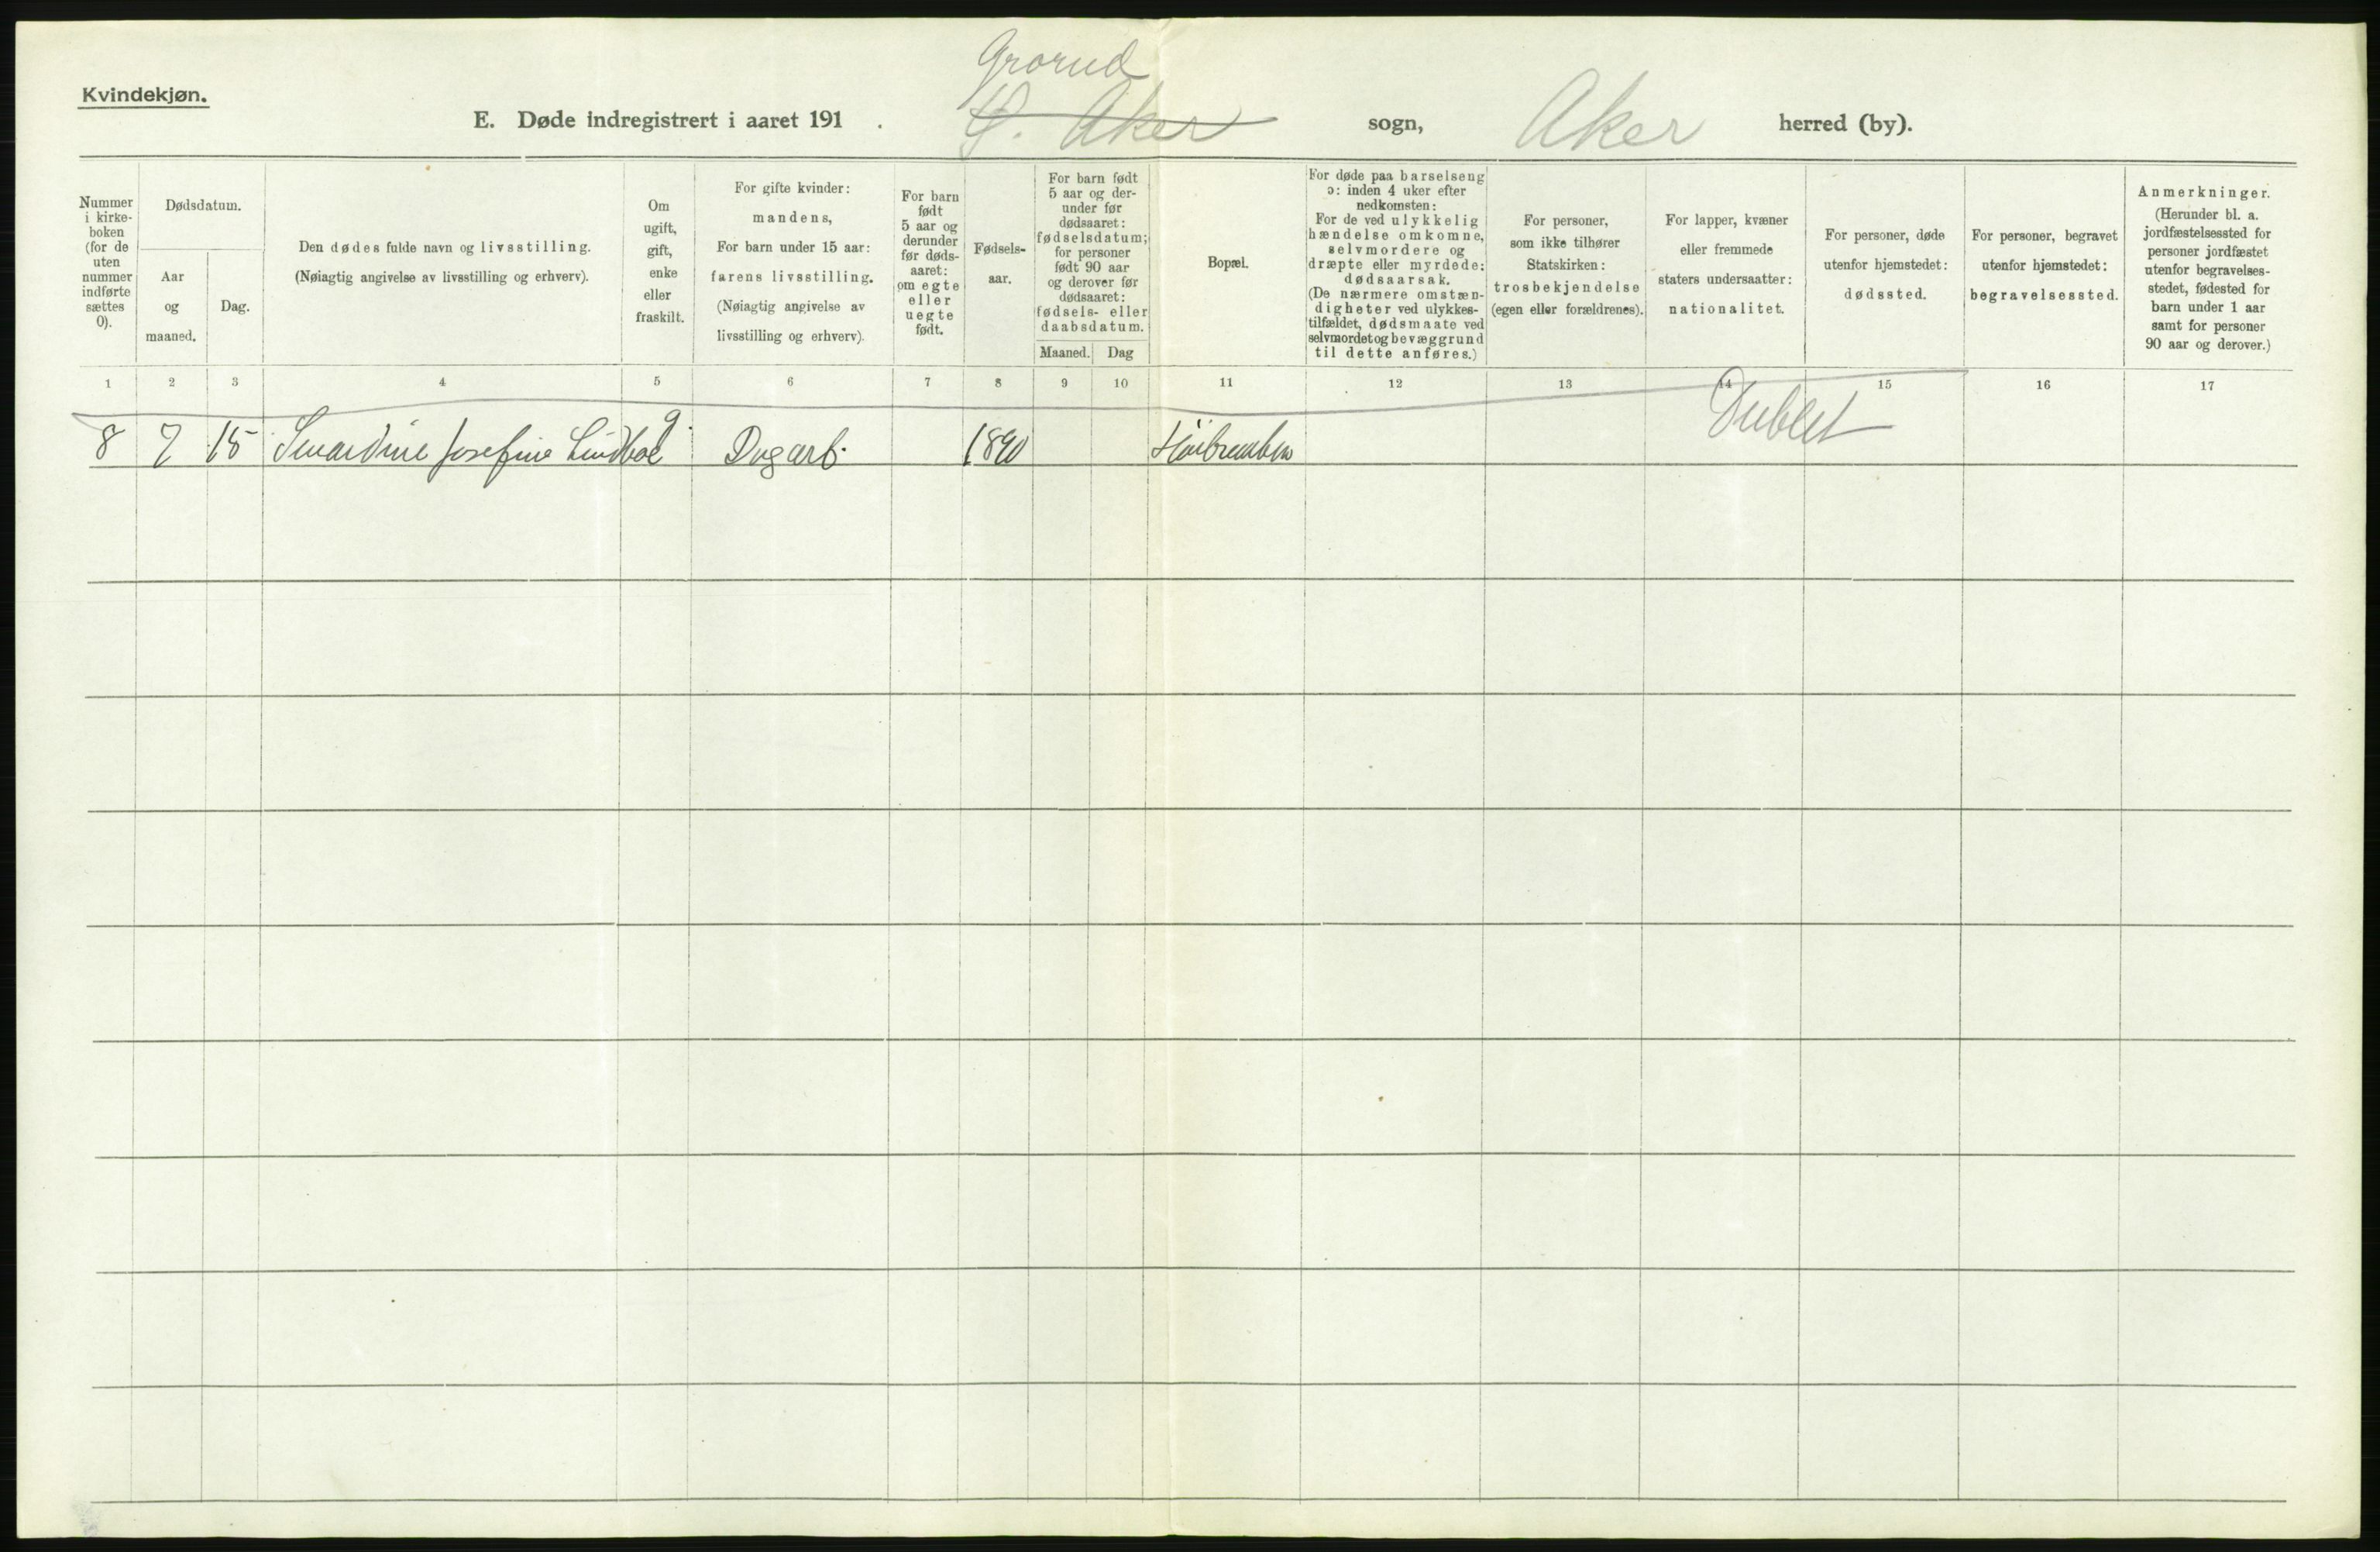 Kvindekjøn.
Grorud
E. Døde indregistrert i aaret 191 . Ø. Aker sogn, Aker herred (by).
Nummer
i kirke-
boken
(for de
uten
nummer
indførte
sættes
0).
Dødsdatum.
Aar
og
maaned.
Dag.
Den dødes fulde navn og livsstilling.
(Nøiagtig angivelse av livsstilling og erhverv).
Om
ugift,
gift,
enke
eller
fraskilt.
For gifte kvinder:
mandens,
For barn under 15 aar:
farens livsstilling.
(Nøiagtig angivelse av
livsstilling og erhverv).
For barn
født
5 aar og
derunder
før døds-
aaret:
om egte
eller
uegte
født.
Fødsels-
aar.
For barn født
5 aar og der-
under før
dødsaaret:
fødselsdatum;
for personer
født 90 aar
og derover før
dødsaaret:
fødsels- eller
daabsdatum.
Maaned.
Dag
Bopæl.
For døde paa barselseng
ɔ: inden 4 uker efter
nedkomsten:
For de ved ulykkelig
hændelse omkomne,
selvmordere og
dræpte eller myrdede:
dødsaarsak.
(De nærmere omstæn-
digheter ved ulykkes-
tilfældet, dødsmaate ved
selvmordet og bevæggrund
til dette anføres.)
For personer,
som ikke tilhører
Statskirken:
trosbekjendelse
(egen eller forældrenes).
For lapper, kvæner
eller fremmede
staters undersaatter:
nationalitet.
For personer, døde
utenfor hjemstedet:
dødssted.
For personer, begravet
utenfor hjemstedet:
begravelsessted.
Anmerkninger.
(Herunder bl. a.
jordfæstelsessted for
personer jordfæstet
utenfor begravelses-
stedet, fødested for
barn under 1 aar
samt for personer
90 aar og derover.)
1 2 3 4 5 6 7 8 9 10 11 12 13 14 15 16 17
Dublet
8 7 15 Josefine g. Dagarb. 1890